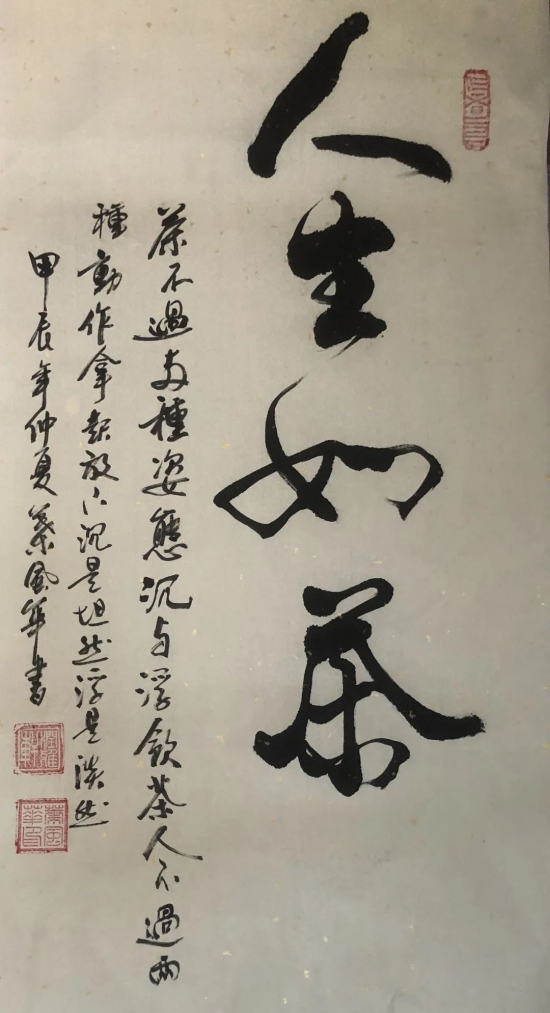 人生如茶
茶不過兩種姿態沉与浮飲茶人不過兩
種動作拿起放下沉是坦然浮是淡然
甲辰年仲夏葉風華書